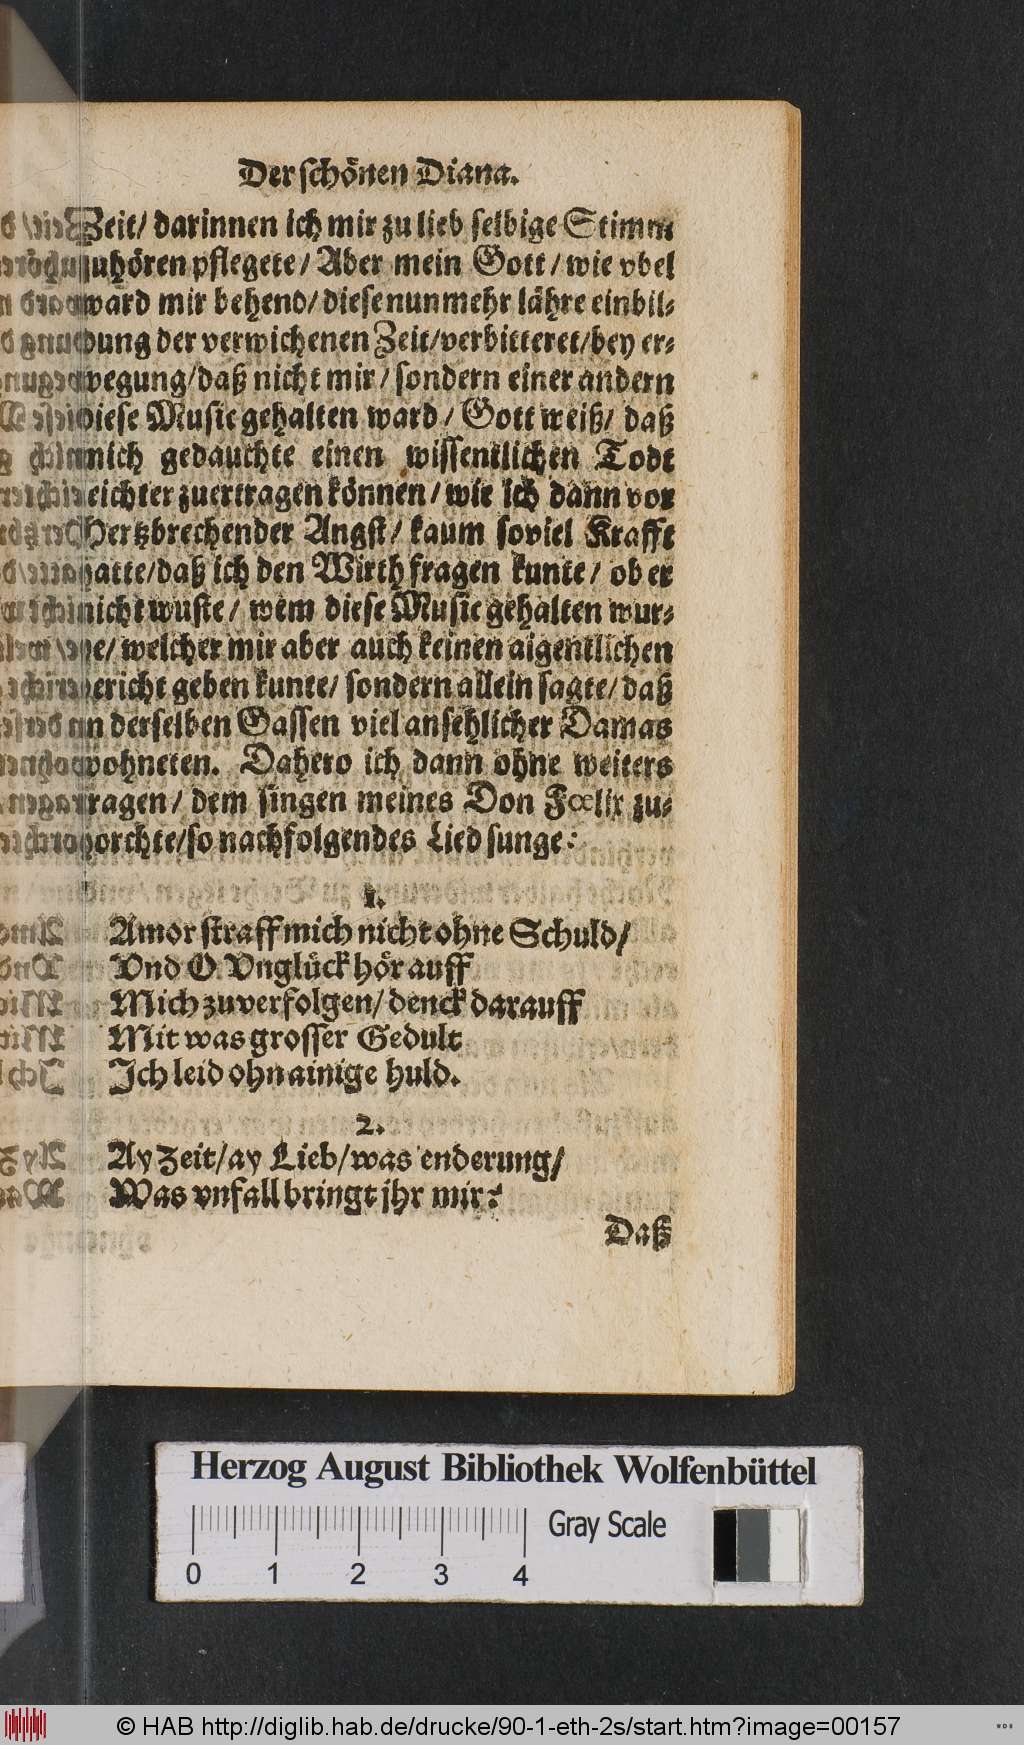 Der schönen Diana.
Zeit/ darinnen ich mir zu lieb selbige Stimm
zuhören pflegete/ Aber mein Gott/ wie vbel
ward mir behend/ diese nunmehr lähre einbil-
dung der verwichenen Zeit/ verbitteret/ bey er-
wegung/ daß nicht mir/ sondern einer andern
diese Music gehalten ward/ Gott weiß/ daß
mich gedauchte einen wissentlichen Todt
leichter zuertragen können/ wie ich dann vor
Hertzbrechender Angst/ kaum soviel Krafft
hatte/ daß ich den Wirth fragen kunte/ ob er
nicht wuste/ wem diese Music gehalten wur-
de/ welcher mir aber auch keinen aigentlichen
bericht geben kunte/ sondern allein sagte/ daß
in derselben Gassen viel ansehlicher Damas
wohneten. Dahero ich dann ohne weiters
fragen/ dem singen meines Don Fœlix zu-
horchte/ so nachfolgendes Lied sunge:
1.
Amor straff mich nicht ohne Schuld/
Vnd O Vnglück hör auff
Mich zuverfolgen/ denck darauff
Mit was grosser Gedult
Ich leid ohn ainige huld.
2.
Ay Zeit/ ay Lieb/ was enderung/
Was vnfall bringt jhr mir?
Daß
Herzog August Bibliothek Wolfenbüttel
0 1 2 3 4 Gray Scale
© HAB http://diglib.hab.de/drucke/90-1-eth-2s/start.htm?image=00157